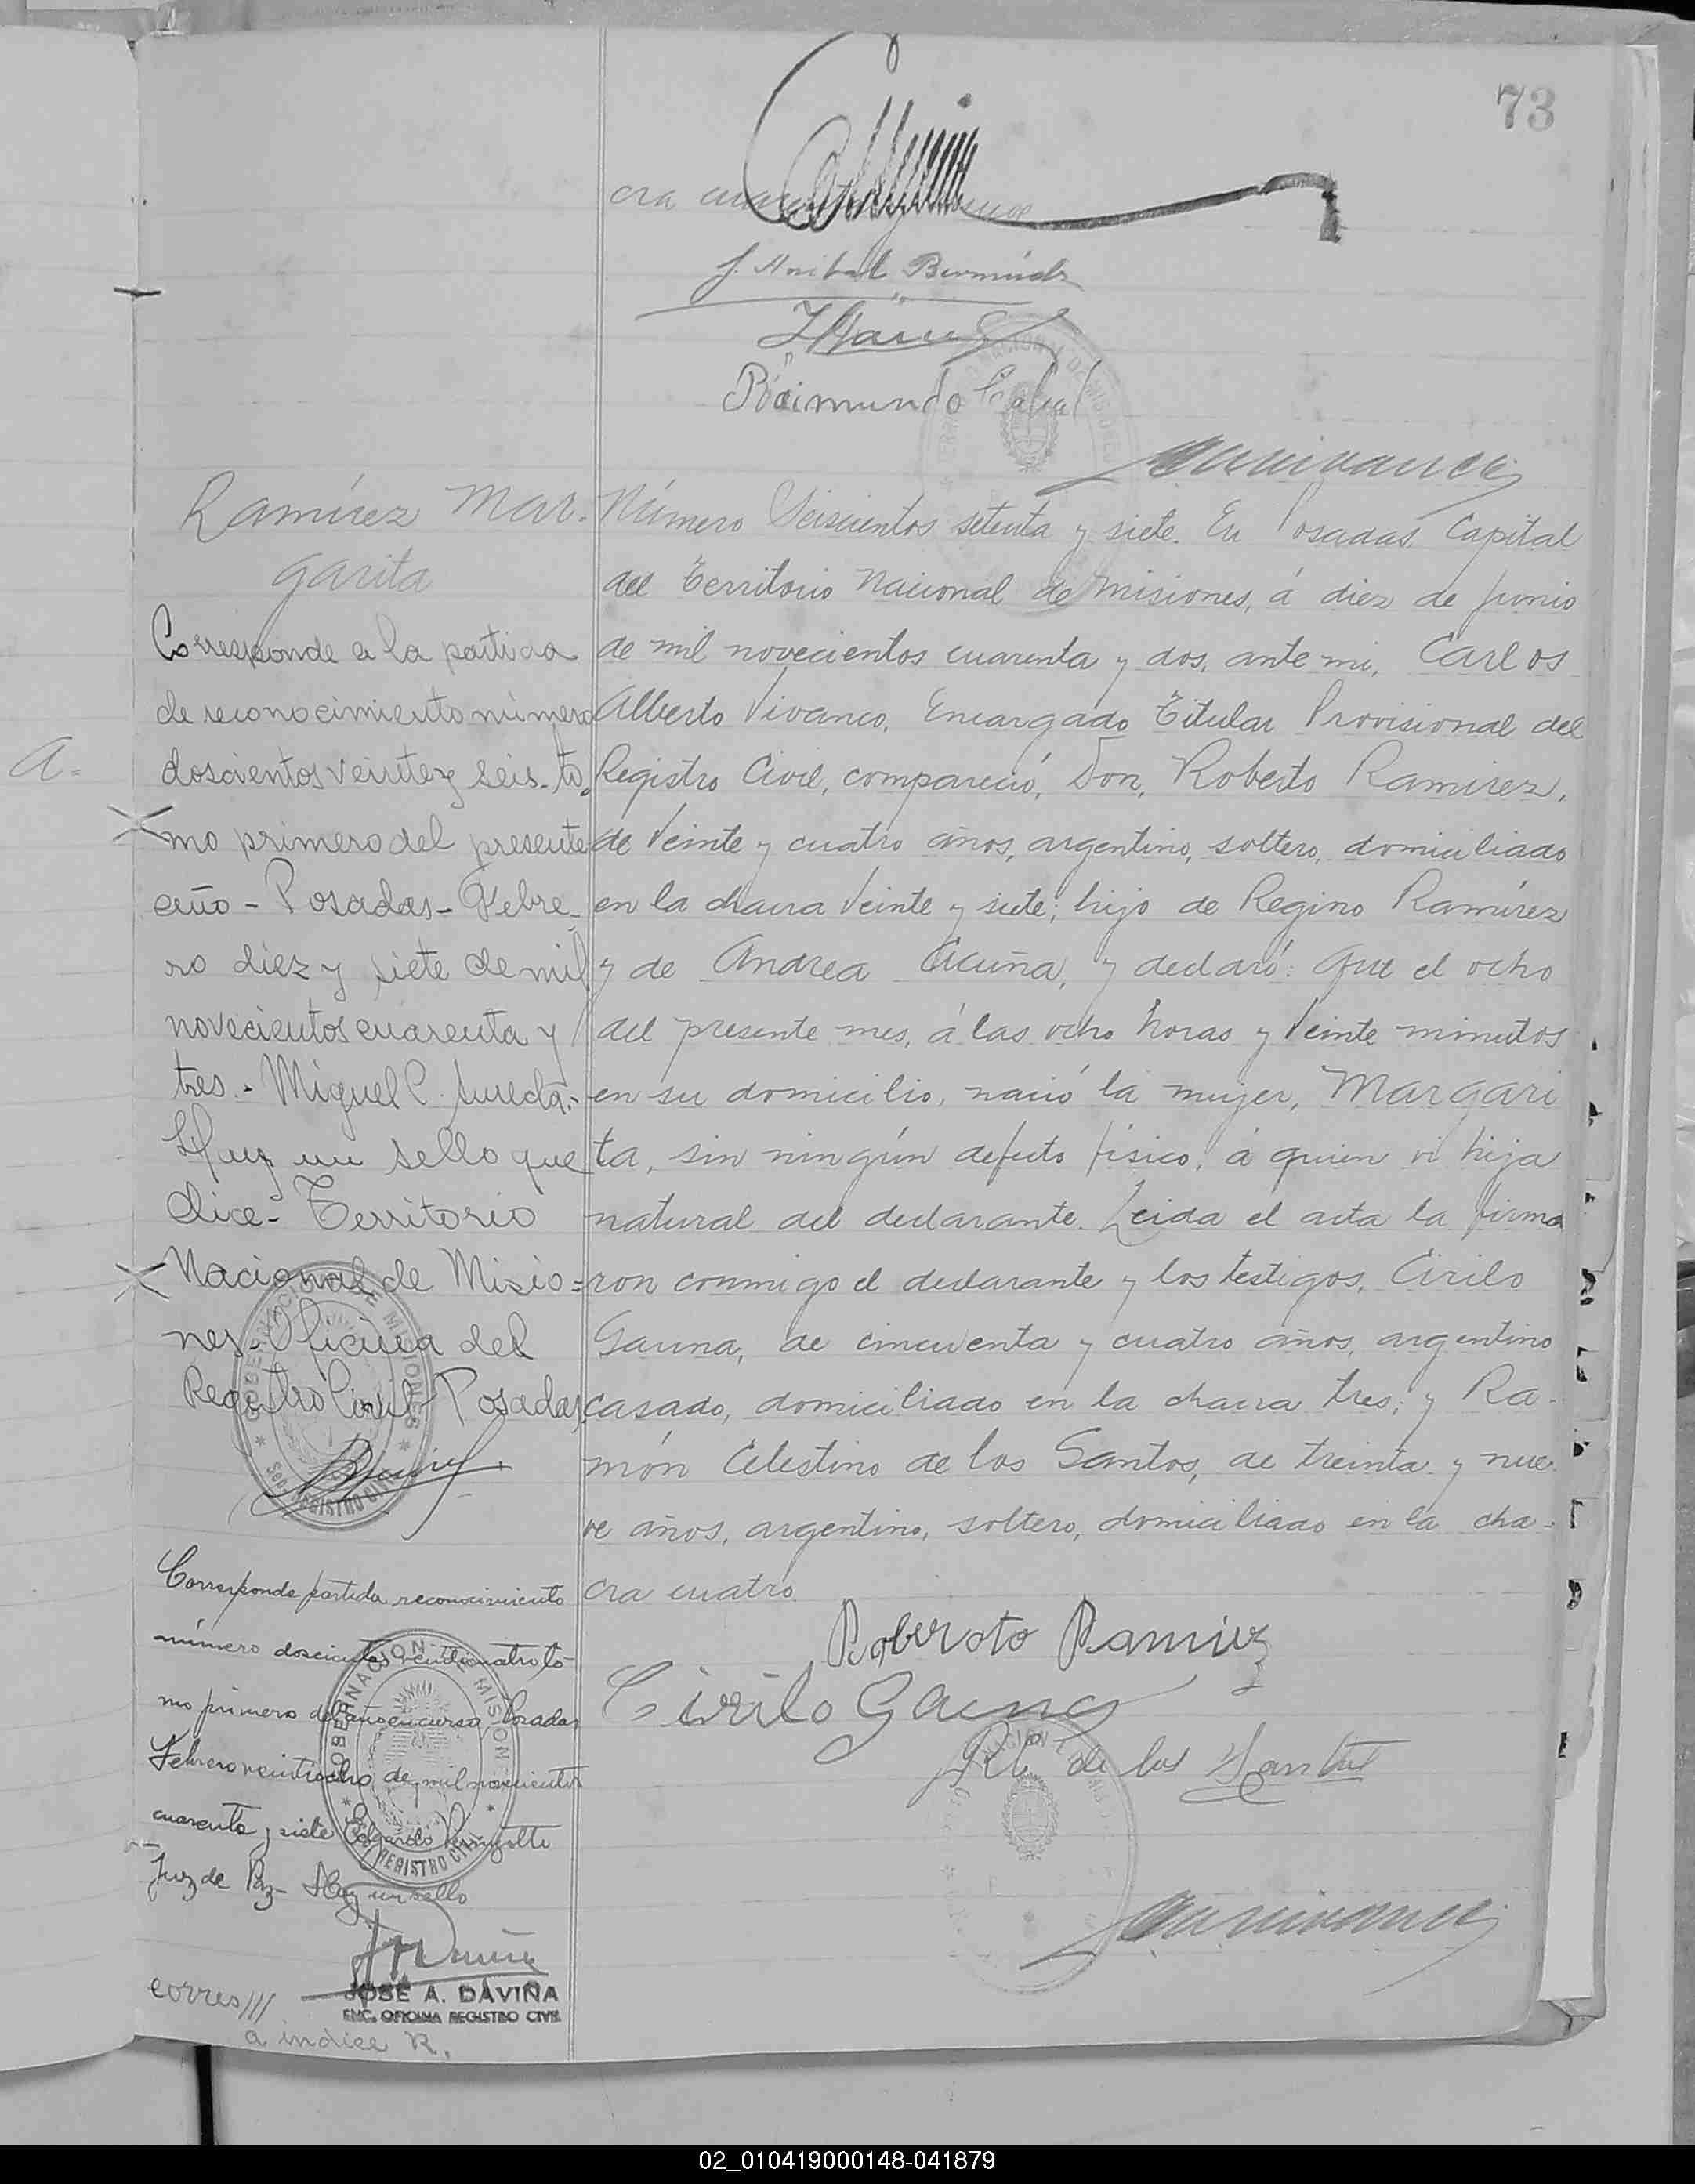 73
cra
J. Anibal Bermúdez
Raimundo Cabral
Ramírez Mar-
garita
Corresponde a la partida
de reconocimiento número
doscientos veinte y seis - to
mo primero del presente
año - Posadas - Febre-
ro diez y siete de mil
novecientos cuarenta y
tres. - Miguel C. Sureda. -
Hay un sello que
dice - Territorio
Nacional de Misio=
nes - Oficina del
Registro Civil - Posadas
A=
Número Seiscientos setenta y siete. En Posadas Capital
del Territorio Nacional de Misiones, á diez de Junio
de mil novecientos cuarenta y dos, ante mi, Carlos
Alberto Vivanco, Encargado Titular Provisional del
Registro Civil, compareció, Don, Roberto Ramirez,
de Veinte y cuatro años, argentino, soltero, domiciliado
en la chacra Veinte y siete; hijo de Regino Ramírez
y de Andrea Acuña, y declaró: Que el ocho
del presente mes, á las ocho horas y Veinte minutos
en su domicilio, nació la mujer, Margari
ta, sin ningún defecto físico, á quien vi hija
natural del declarante. Leida el acta la firma
ron conmigo el declarante y los testigos, Cirilo
Gauna, de cincuenta y cuatro años, argentino
casado, domiciliado en la chacra tres; y Ra-
món Celestino de los Santos, de treinta y nue
ve años, argentino, soltero, domiciliado en la cha-
cra cuatro.
Roberoto Ramirez
Cirilo Gauna
R C de los Santos
Corresponde partida reconocimiento
número doscientos veinticuatro to-
mo primero del año en curso Posadas
Febrero veintiocho de mil novecientos
cuarenta y siete Edgardo
Juez de Paz - Hay un sello
JOSÉ A. DAVIÑA
ENC. OFICINA REGISTRO CIVIL
corres///
a indice R.
GOBERNACION DE MISIONES
Sec. REGISTRO CIVIL
GOBERNACION DE MISIONES
REGISTRO CIVIL
02_010419000148-041879